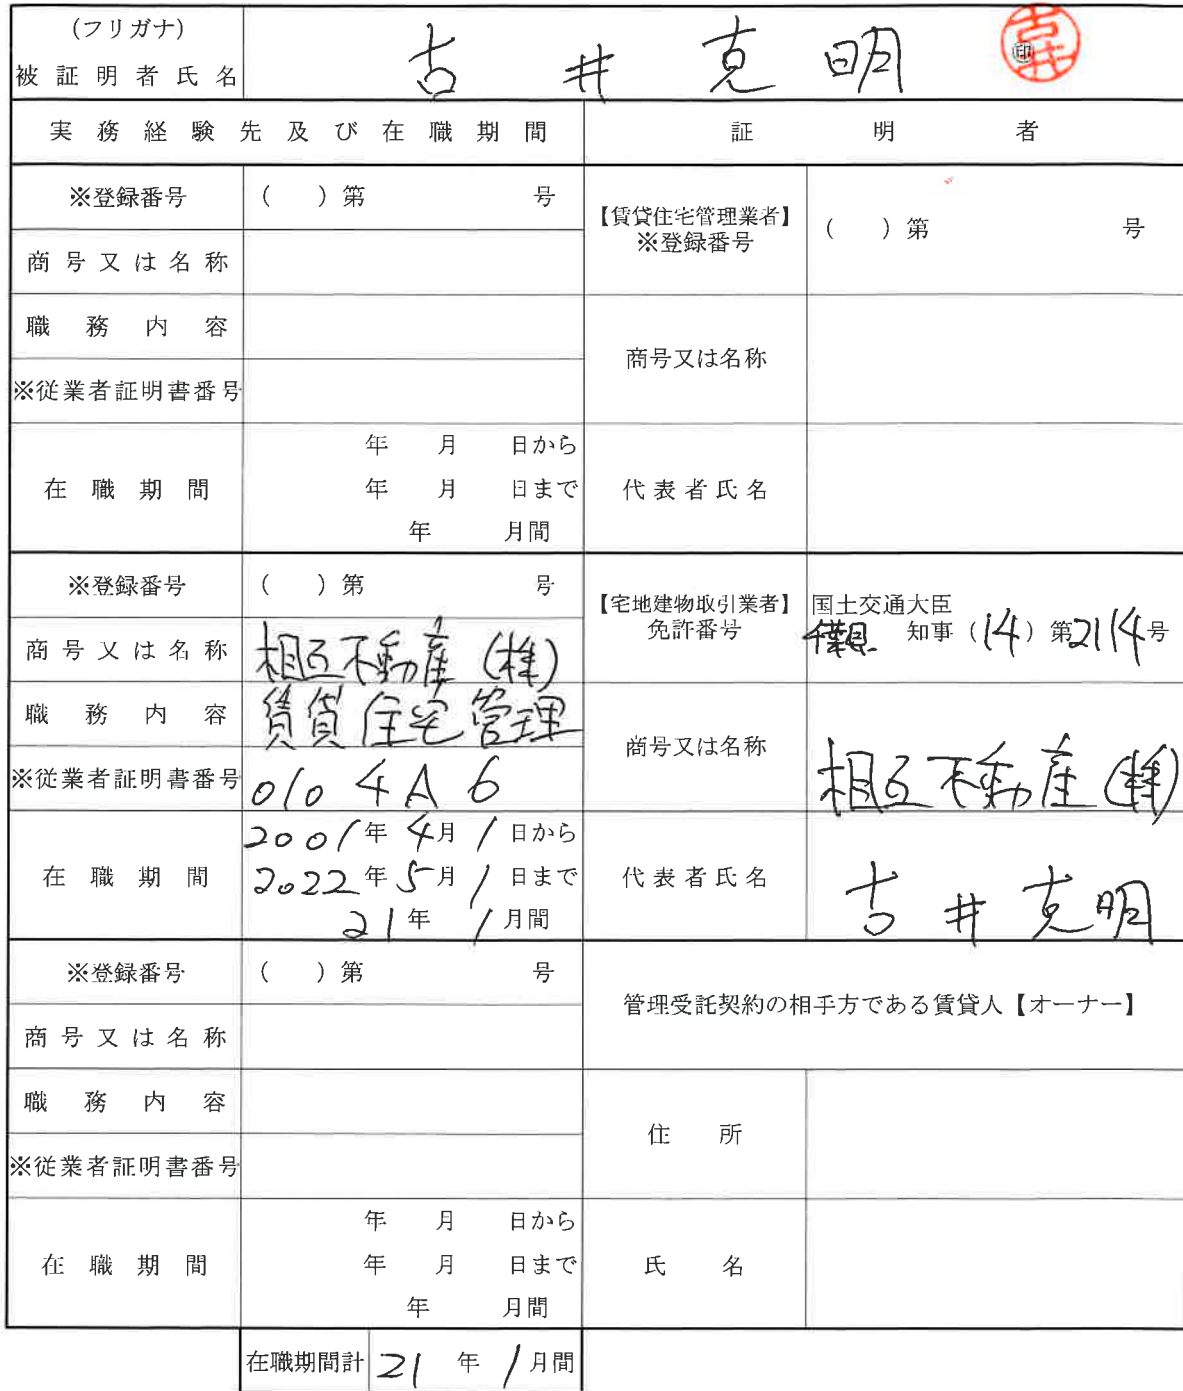 (フリガナ)
被証明者氏名 古井克明 ㊞ 古井
実務経験先及び在職期間 証明者
※登録番号 ( )第 号
商号又は名称
職務内容
※従業者証明書番号
在職期間
年 月 日から
年 月 日まで
年 月間
【賃貸住宅管理業者】
※登録番号
( )第 号
商号又は名称
代表者氏名
※登録番号 ( )第 号
商号又は名称 相互不動産(株)
職務内容 賃貸住宅管理
※従業者証明書番号 0104A6
在職期間
2001年4月1日から
2022年5月1日まで
21年1月間
【宅地建物取引業者】
免許番号
国土交通大臣
千葉県 知事(14)第2114号
商号又は名称 相互不動産(株)
代表者氏名 古井克明
※登録番号 ( )第 号
商号又は名称
職務内容
※従業者証明書番号
在職期間
年 月 日から
年 月 日まで
年 月間
管理受託契約の相手方である賃貸人【オーナー】
住所
氏名
在職期間計 21年1月間